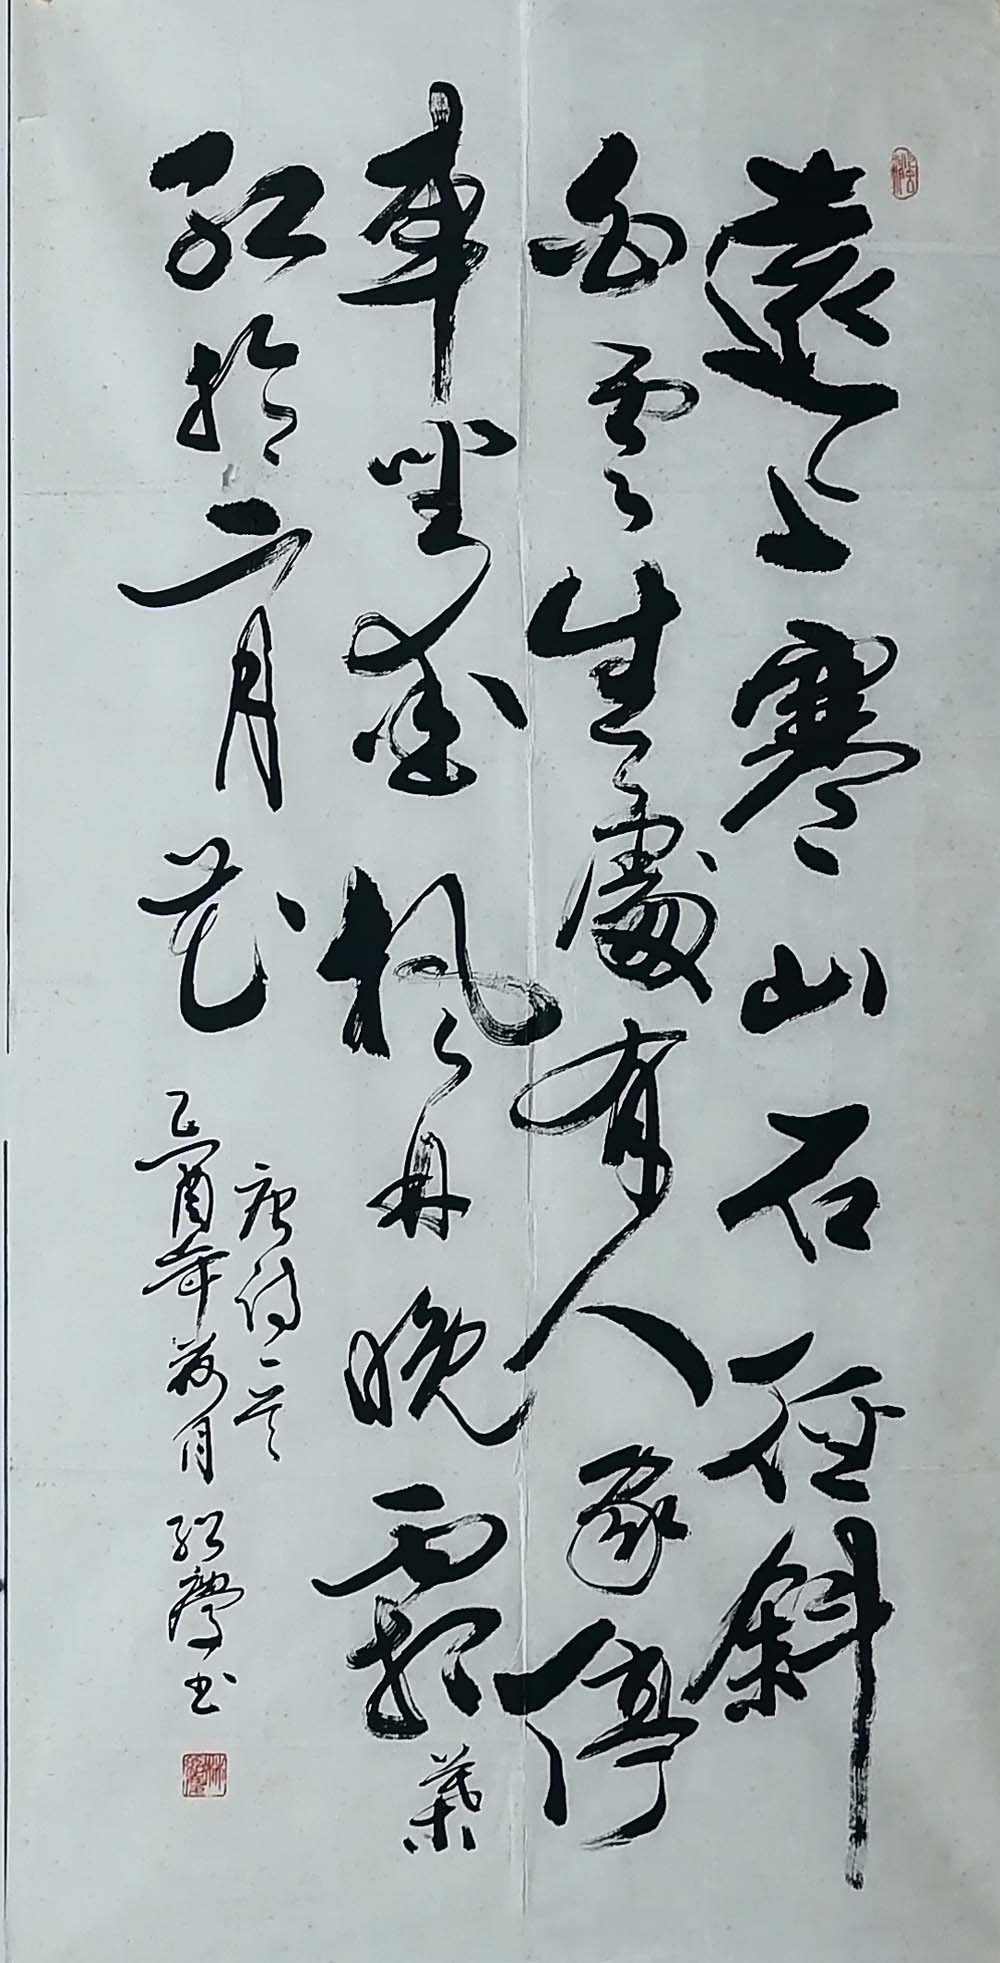 遠上寒山石径斜
白雲生處有人家停
車坐愛枫林晚霜葉
红於二月花
唐诗一首
乙酉年荷月绍慶书